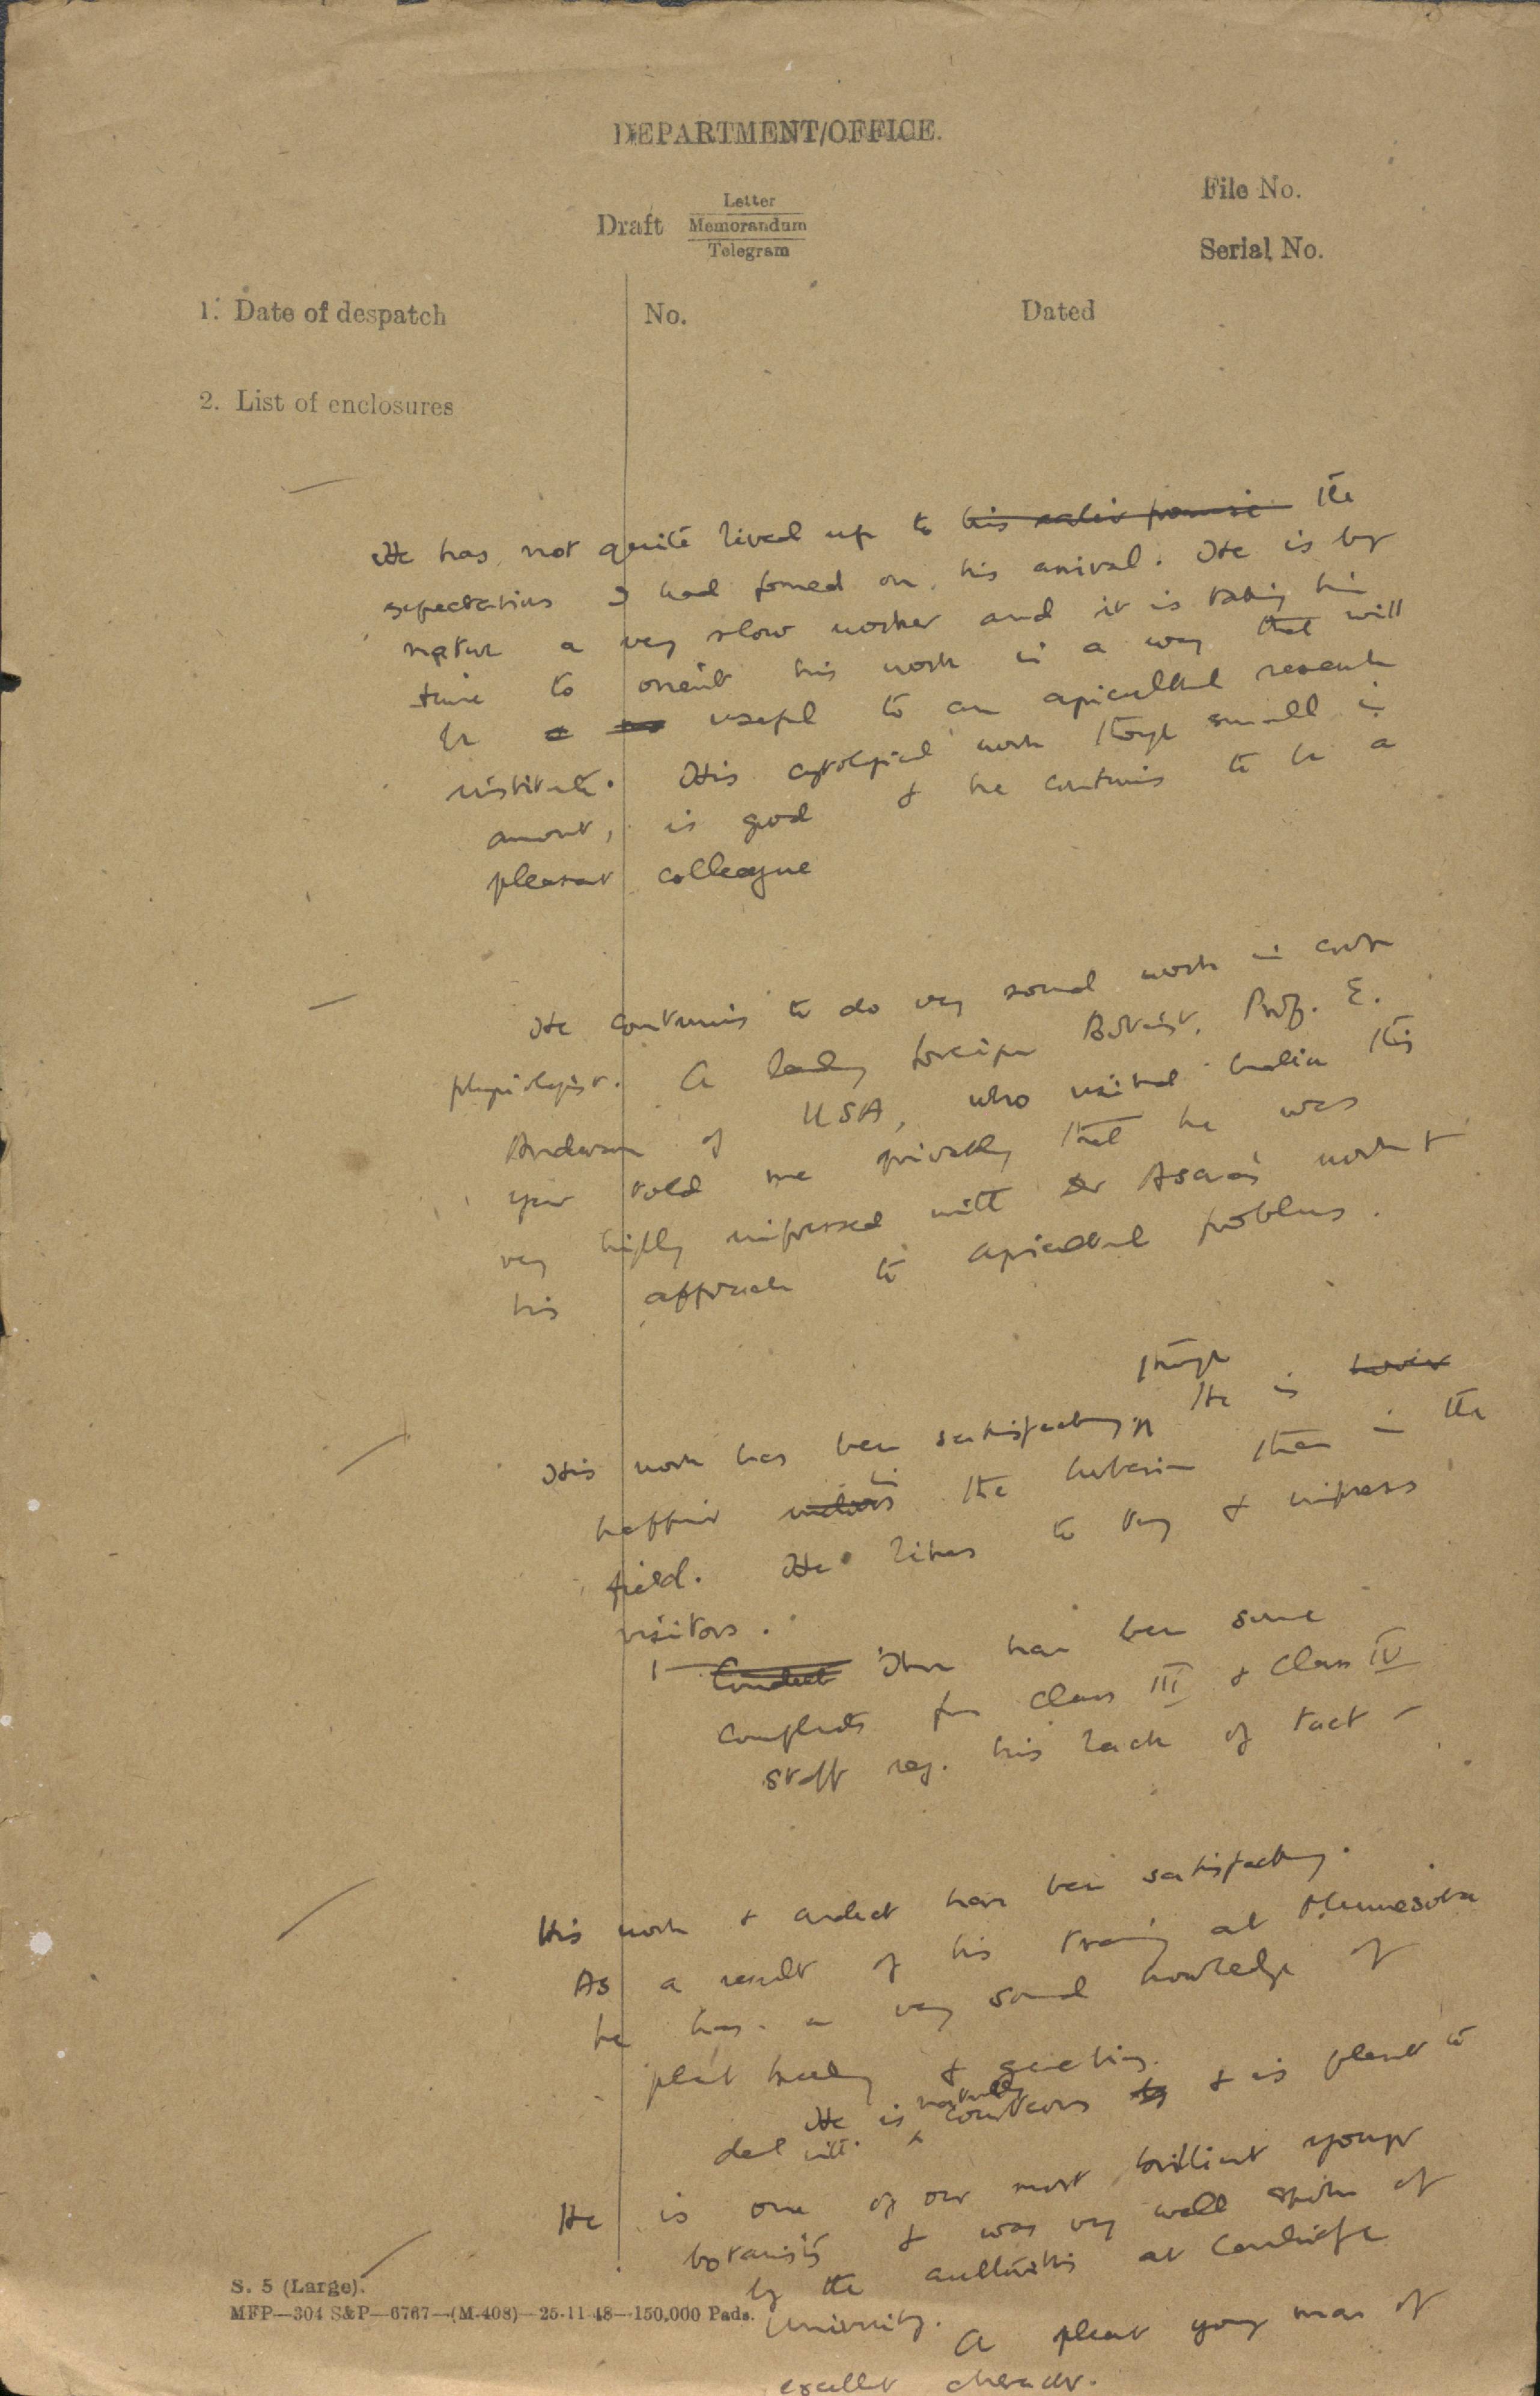 DEPARTMENT/OFFICE.
File No.
Draft Letter
Memorandum
Telegram
Serial No.
1. Date of despatch
No.
Dated
2. List of enclosures
He has not quite lived up to his earlier promise the
expectations I had formed on his arrival. He is by
nature a very slow worker and it is taking him
time to orient his work in a way that will
be useful to an agricultural research
institute. His cytological work though small in
amount, is good & he continues to be a
pleasant colleague
He continues to do very sound work in crop
physiology. A leading foreign Botanist, Prof. E.
Anderson of USA, who visited India this
year told me privately that he was
very highly impressed with Dr Asana's work &
his approach to agricultural problems.
though
His work has been satisfactory, He is
happier in the herbarium than in the
field. He likes to try & impress
visitors.
Conduct There have been some
complaints from Class III & Class IV
staff reg. his lack of tact –
His work & conduct have been satisfactory.
As a result of his training at Minnesota
he has a very sound knowledge of
plant breeding & genetics.
He is naturally courteous & is pleasant to
deal with.
He is one of our most brilliant younger
botanists & was very well spoken of
by the authorities at Cambridge
University. A pleasant young man of
excellent character.
S. 5 (Large).
MFP—304 S&P—6767—(M-408)—25-11-48—150,000 Pads.